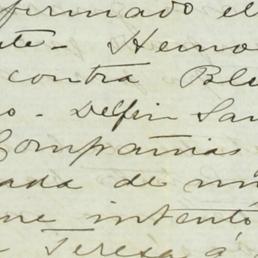 firmado el
te - Hemo
contra Ble
o. - Delfin San
Compañias
ada de mi
me intento
Teresa á